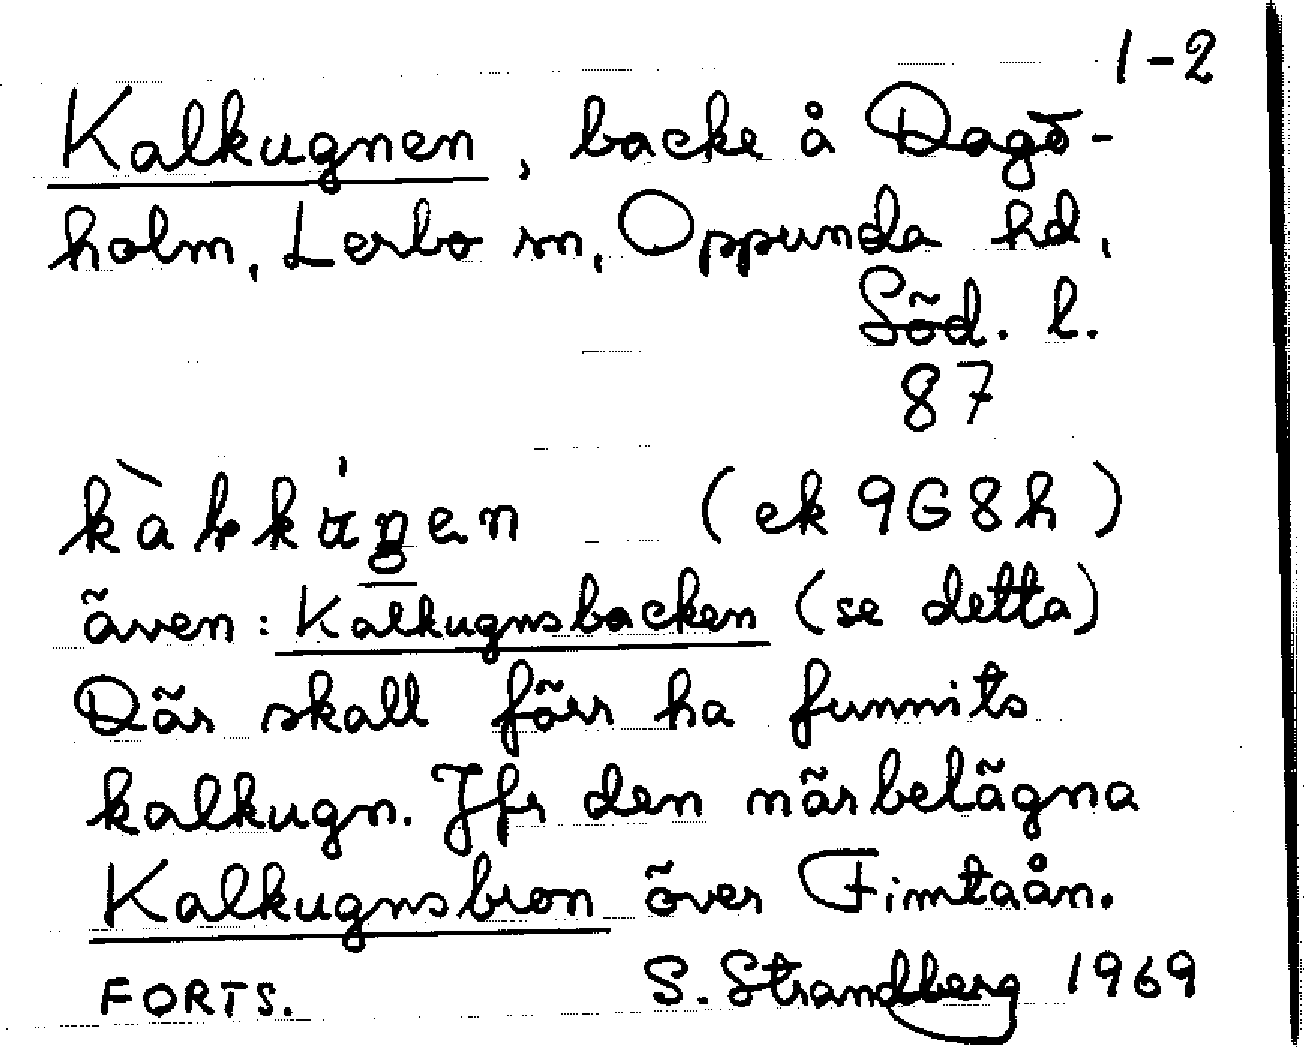 1-2
Kalkugnen, backe å Dagö-
holm, Lerbo sn, Oppunda hd,
Söd. l.
87
(ek 9G8h)
även: Kalkugnsbacken (se detta)
Där skall förr ha funnits
kalkugn. Jfr den närbelägna
Kalkugnsbron över Fimtaån.
FORTS. S. Strandberg 1969